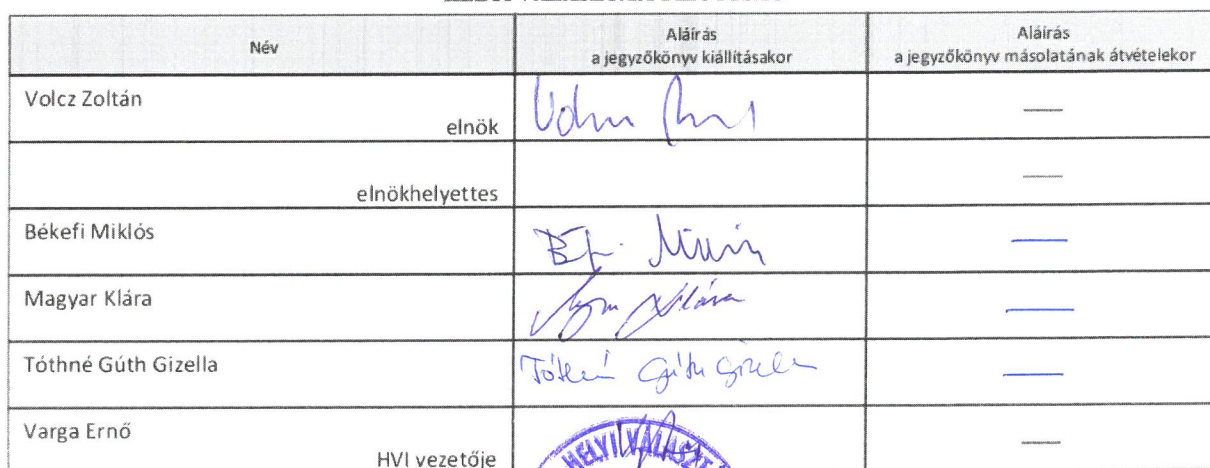 Név
Aláírás
a jegyzőkönyv kiállításakor
Aláírás
a jegyzőkönyv másolatának átvételekor
Volcz Zoltán
elnök
elnökhelyettes
Békefi Miklós
Magyar Klára
Klára
Tóthné Gúth Gizella
Tóthné Gúth Gizella
Varga Ernő
HVI vezetője
HELYI VÁLASZT